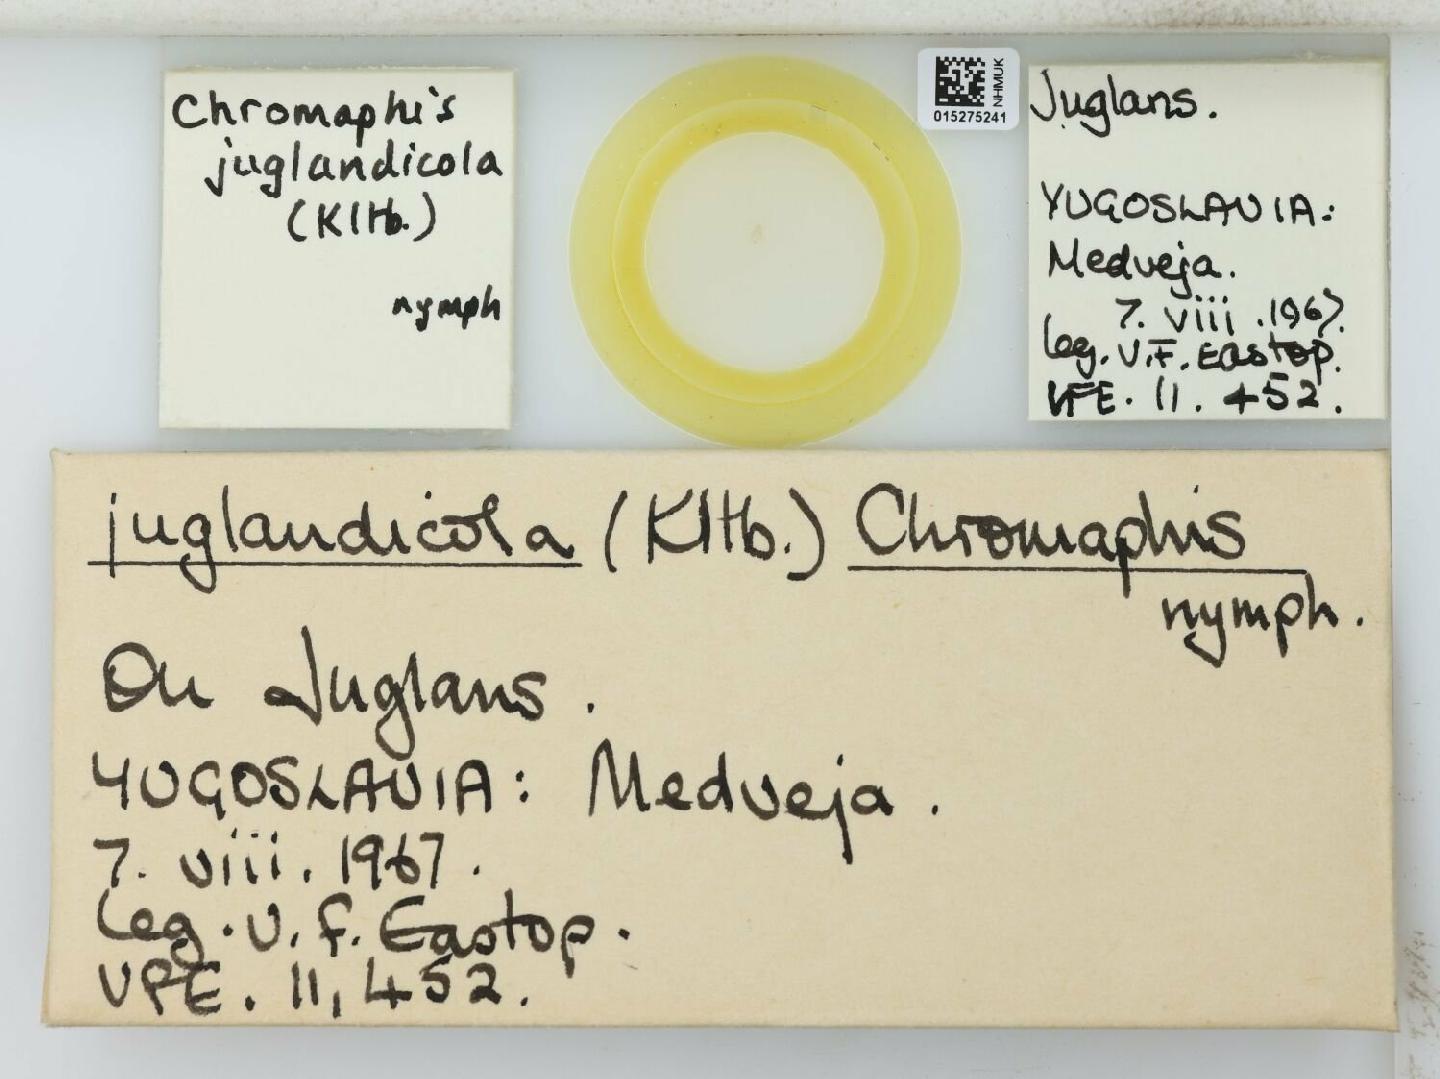 Chromaphis
juglandicola
(Kltb.)
nymph
NHMUK
015275241
Juglans.
YUGOSLAVIA:
Medveja.
7. viii. 1967.
leg. V.F. Eastop.
VFE. 11. 452.
juglandicola (Kltb.) Chromaphis
nymph.
On Juglans.
YUGOSLAVIA: Medveja.
7. viii. 1967.
Leg. V. F. Eastop.
VFE. 11, 452.